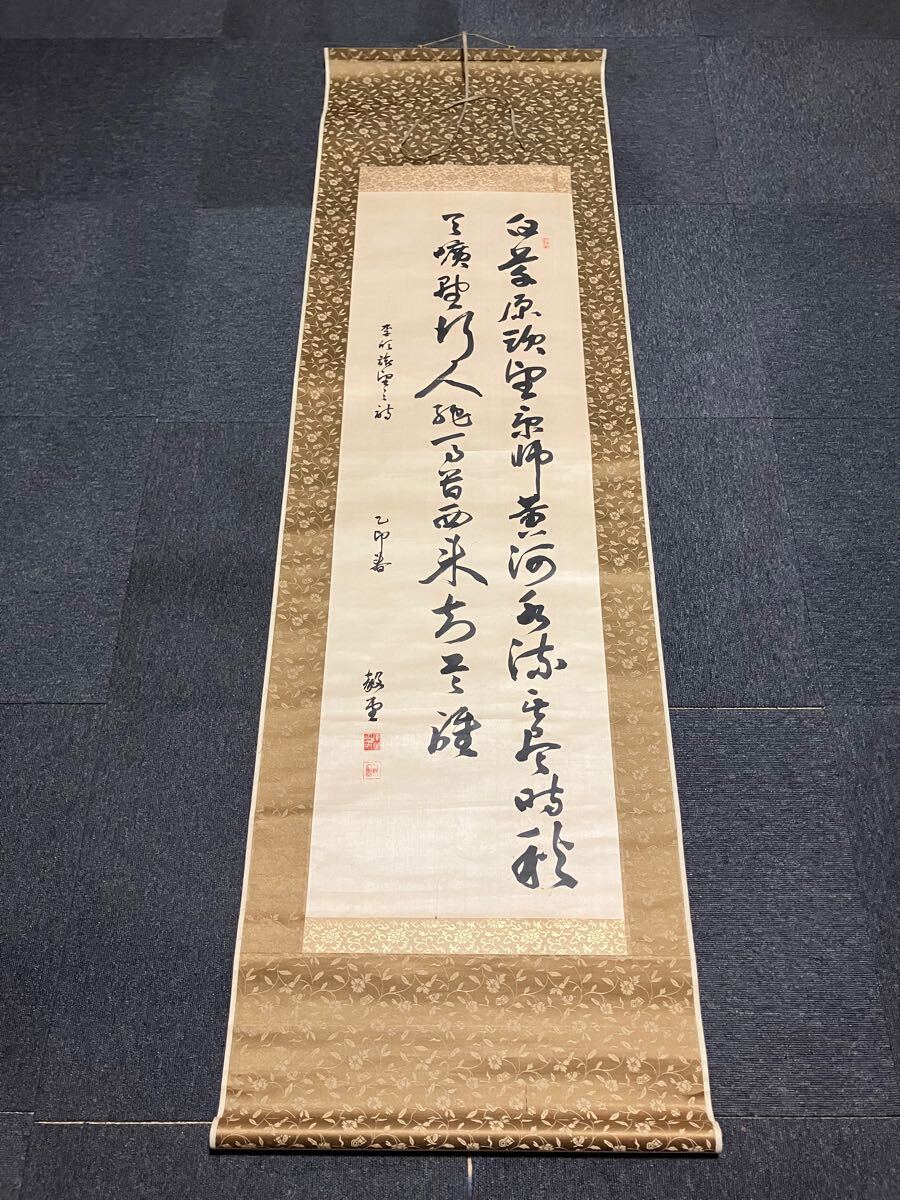 白草原頭望京師黄河水流無尽時秋
天曠野行人絶馬首西来知是誰
李頎旅望之詩
乙卯春